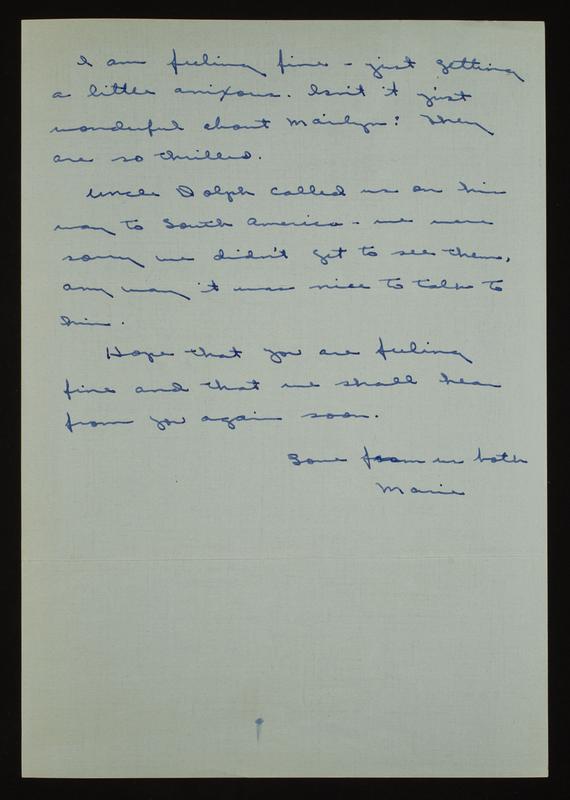 I am feeling fine - just getting
a little anixous. Isn't it just
wonderful about Marilyn? They
are so thrilled.
Uncle Dolph called us on his
way to South America - we were
sorry we didn't get to see them,
any way it was nice to talk to
him.
Hope that you are feeling
fine and that we shall hear
from you again soon.
Love from us both
Marie